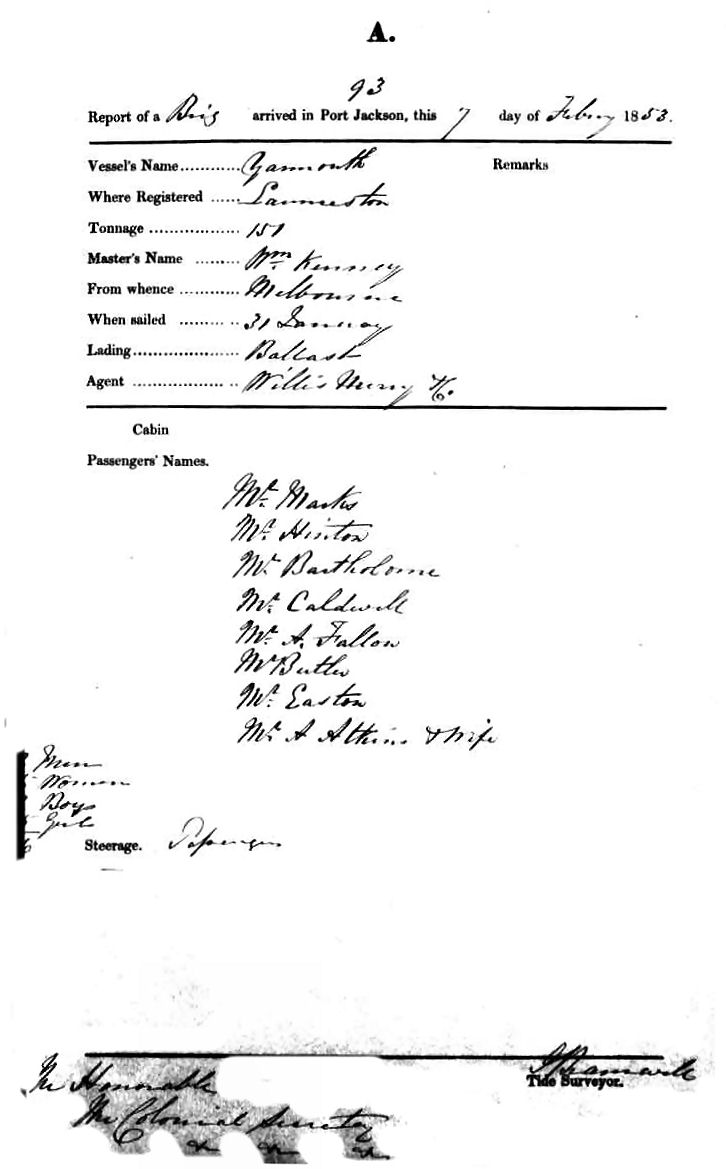 A.
93
Report of a Brig arrived in Port Jackson, this 7 day of Febry 1853.
Vessel's Name ............ Yarmouth Remarks
Where Registered ...... Launceston
Tonnage .................. 151
Master's Name ......... Wm. Kenney
From whence ............ Melbourne
When sailed ............ 31 January
Lading ..................... Ballast
Agent ..................... Willis Merry & Co.
Cabin
Passengers' Names.
Mr. Marks
Mr. Hinton
Mr. Bartholome
Mr. Caldwell
Mr. A. Fallon
Mr Butler
Mr. Easton
Mr. A Atkins & Wife
Men
Women
Boys
Girls
Steerage. Passengers
Tide Surveyor.
The Honorable
The Colonial Secretary